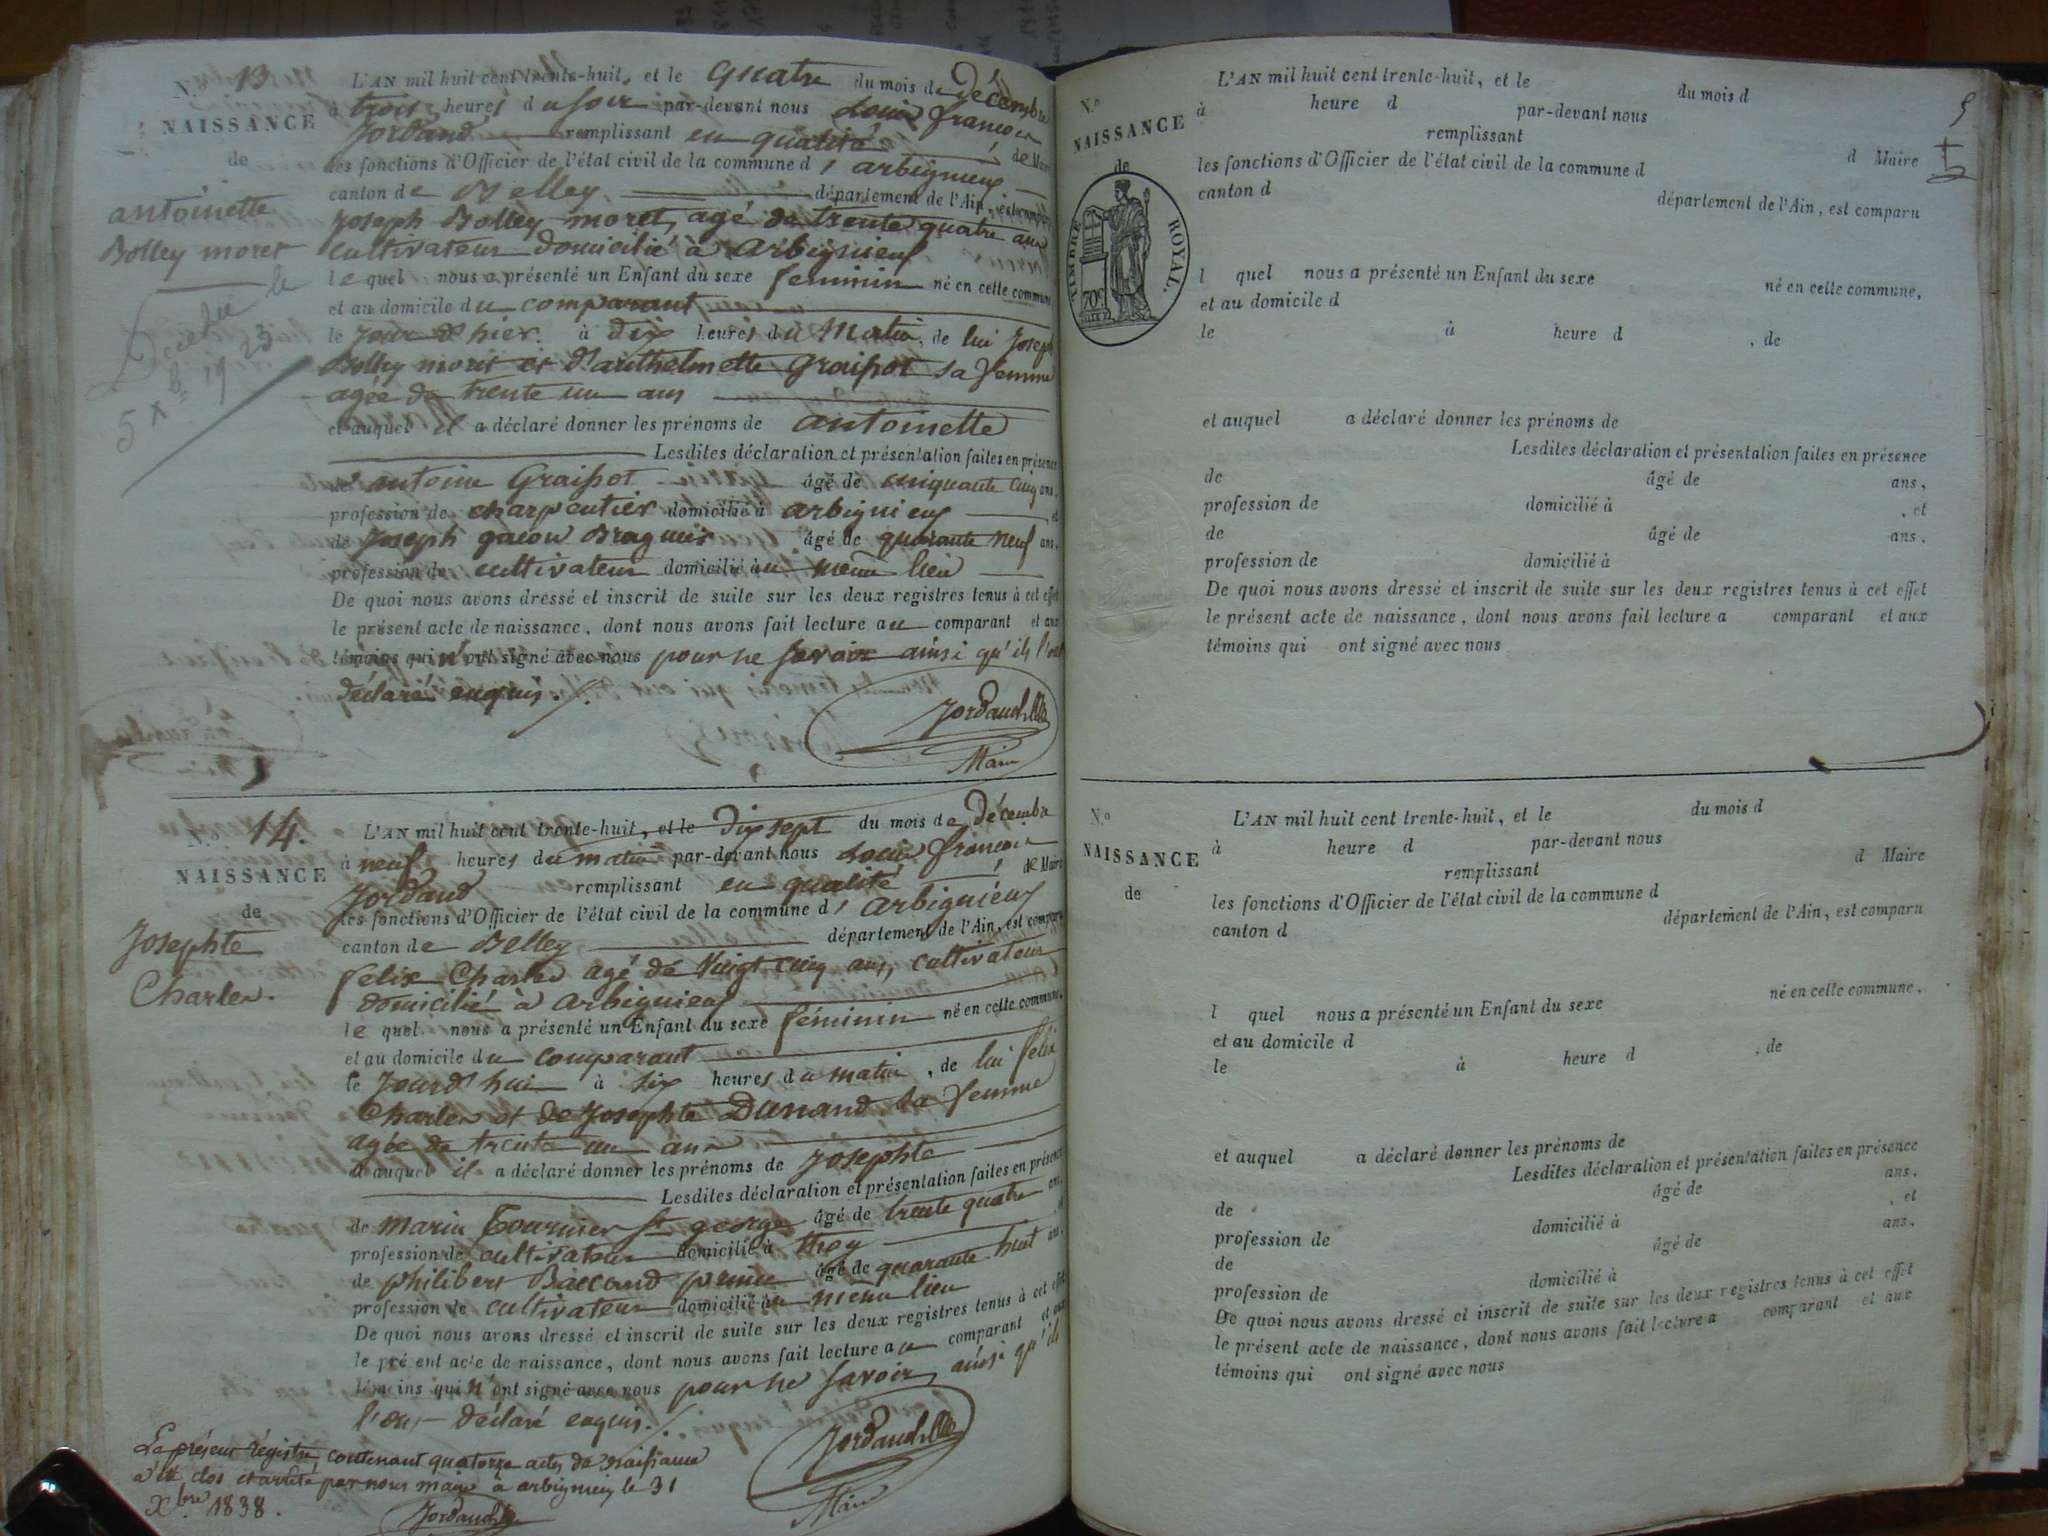 N.° 13
NAISSANCE
de
antoinette
Bolley moret
Décédée le
5 Xb. 1923
L'AN mil huit cent trente-huit, et le quatre du mois de Décembre
à trois heures du soir par-devant nous Louis françois
Jordand remplissant en qualité de Maire
les fonctions d'Officier de l'état civil de la commune d'arbignieu
canton de Belley département de l'Ain, est comparu
Joseph Bolley moret, agé de trente quatre ans
cultivateur domicilié à arbignieu
lequel nous a présenté un Enfant du sexe féminin né en cette commune
et au domicile du comparant
le jour d'hier à dix heures du Matin, de lui Joseph
Bolley moret et d'anthelmette Graissot sa femme
agée de trente un ans
et auquel il a déclaré donner les prénoms de antoinette
Lesdites déclaration et présentation faites en présence
antoine Graissot âgé de cinquante cinq ans,
profession de charpentier domicilié à arbignieu et
de Joseph gacon âgé de quarante neuf ans,
profession de cultivateur domicilié au même lieu
De quoi nous avons dressé et inscrit de suite sur les deux registres tenus à cet effet
le présent acte de naissance, dont nous avons fait lecture au comparant et aux
témoins qui n'ont signé avec nous pour ne savoir ainsi qu'ils l'ont
déclaré enquis ./.
Jordand
Maire
N.° 14.
NAISSANCE
de
Josephte
Charlen.
L'AN mil huit cent trente-huit, et le dix sept du mois de Décembre
à neuf heures du matin par-devant nous Louis françois
Jordand remplissant en qualité de Maire
les fonctions d'Officier de l'état civil de la commune d'arbignieu
canton de Belley département de l'Ain, est comparu
felix Charlen agé de vingt cinq ans, cultivateur
domicilié à arbignieu
lequel nous a présenté un Enfant du sexe féminin né en cette commune,
et au domicile du comparant
le jourd'hui à six heures du matin, de lui felix
Charlen et de Josephte Dunand sa femme
agée de trente un ans
et auquel il a déclaré donner les prénoms de josephte
Lesdites déclaration et présentation faites en présence
de marin Tournier St george âgé de trente quatre ans,
profession de cultivateur domicilié à thoy et
de philibert Baccand âgé de quarante huit ans,
profession de cultivateur domicilié au même lieu
De quoi nous avons dressé et inscrit de suite sur les deux registres tenus à cet effet
le pré ent acte de naissance, dont nous avons fait lecture au comparant et aux
témoins qui n'ont signé avec nous pour ne savoir, ainsi qu'ils
l'ont déclaré enquis ./.
Jordand
Maire
Le présent régistre, contenant quatorze actes de naissance
a été clos et arrêté par nous maire à arbignieu le 31
Xbre 1838.
Jordand
5
N.°
NAISSANCE
de
TIMBRE ROYAL.
70c
L'AN mil huit cent trente-huit, et le du mois d
à heure d par-devant nous
remplissant d Maire
les fonctions d'Officier de l'état civil de la commune d
canton d département de l'Ain, est comparu
l quel nous a présenté un Enfant du sexe né en cette commune,
et au domicile d
le à heure d , de
et auquel a déclaré donner les prénoms de
Lesdites déclaration et présentation faites en présence
de âgé de ans,
profession de domicilié à , et
de âgé de ans,
profession de domicilié à
De quoi nous avons dressé et inscrit de suite sur les deux registres tenus à cet effet
le présent acte de naissance, dont nous avons fait lecture a comparant et aux
témoins qui ont signé avec nous
N.°
NAISSANCE
de
L'AN mil huit cent trente-huit, et le du mois d
à heure d par-devant nous
remplissant d Maire
les fonctions d'Officier de l'état civil de la commune d
canton d département de l'Ain, est comparu
l quel nous a présenté un Enfant du sexe né en cette commune,
et au domicile d
le à heure d , de
et auquel a déclaré donner les prénoms de
Lesdites déclaration et présentation faites en présence
de âgé de ans,
profession de domicilié à , et
de âgé de ans,
profession de domicilié à
De quoi nous avons dressé et inscrit de suite sur les deux registres tenus à cet effet
le présent acte de naissance, dont nous avons fait lecture a comparant et aux
témoins qui ont signé avec nous